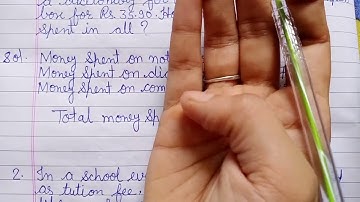 a dictionary for
box for Rs 35.90. Ho
spent in all?
Sol. Money Spent on not
Money Spent on dic
Money Spent on com
Total money Sp
2. In a school ev
as tution fee,